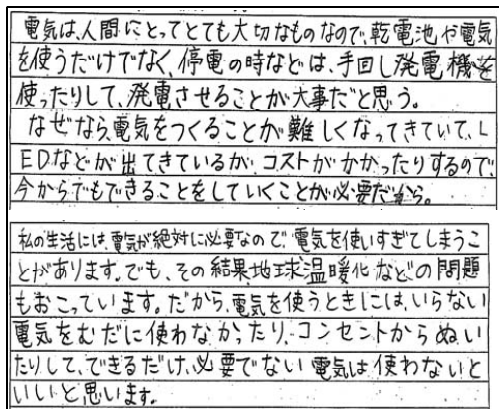 電気は、人間にとってとても大切なものなので、乾電池や電気
を使うだけでなく、停電の時などは、手回し発電機を
使ったりして、発電させることが大事だと思う。
なぜなら、電気をつくることが難しくなってきていて、L
EDなどが出てきているが、コストがかかったりするので、
今からでもできることをしていくことが必要だから。
私の生活には、電気が絶対に必要なので、電気を使いすぎてしまうこ
とがあります。でも、その結果、地球温暖化などの問題
もおこっています。だから、電気を使うときには、いらない
電気をむだに使わなかったり、コンセントからぬい
たりして、できるだけ、必要でない電気は使わないと
いいと思います。